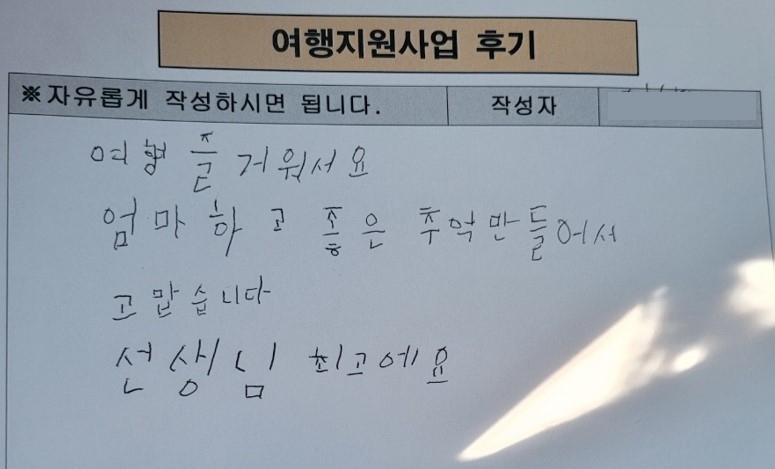 여행지원사업 후기
※자유롭게 작성하시면 됩니다. 작성자
여행 즐거워서요
엄마하고 좋은 추억만들어서
고맙습니다
선상님 최고에요